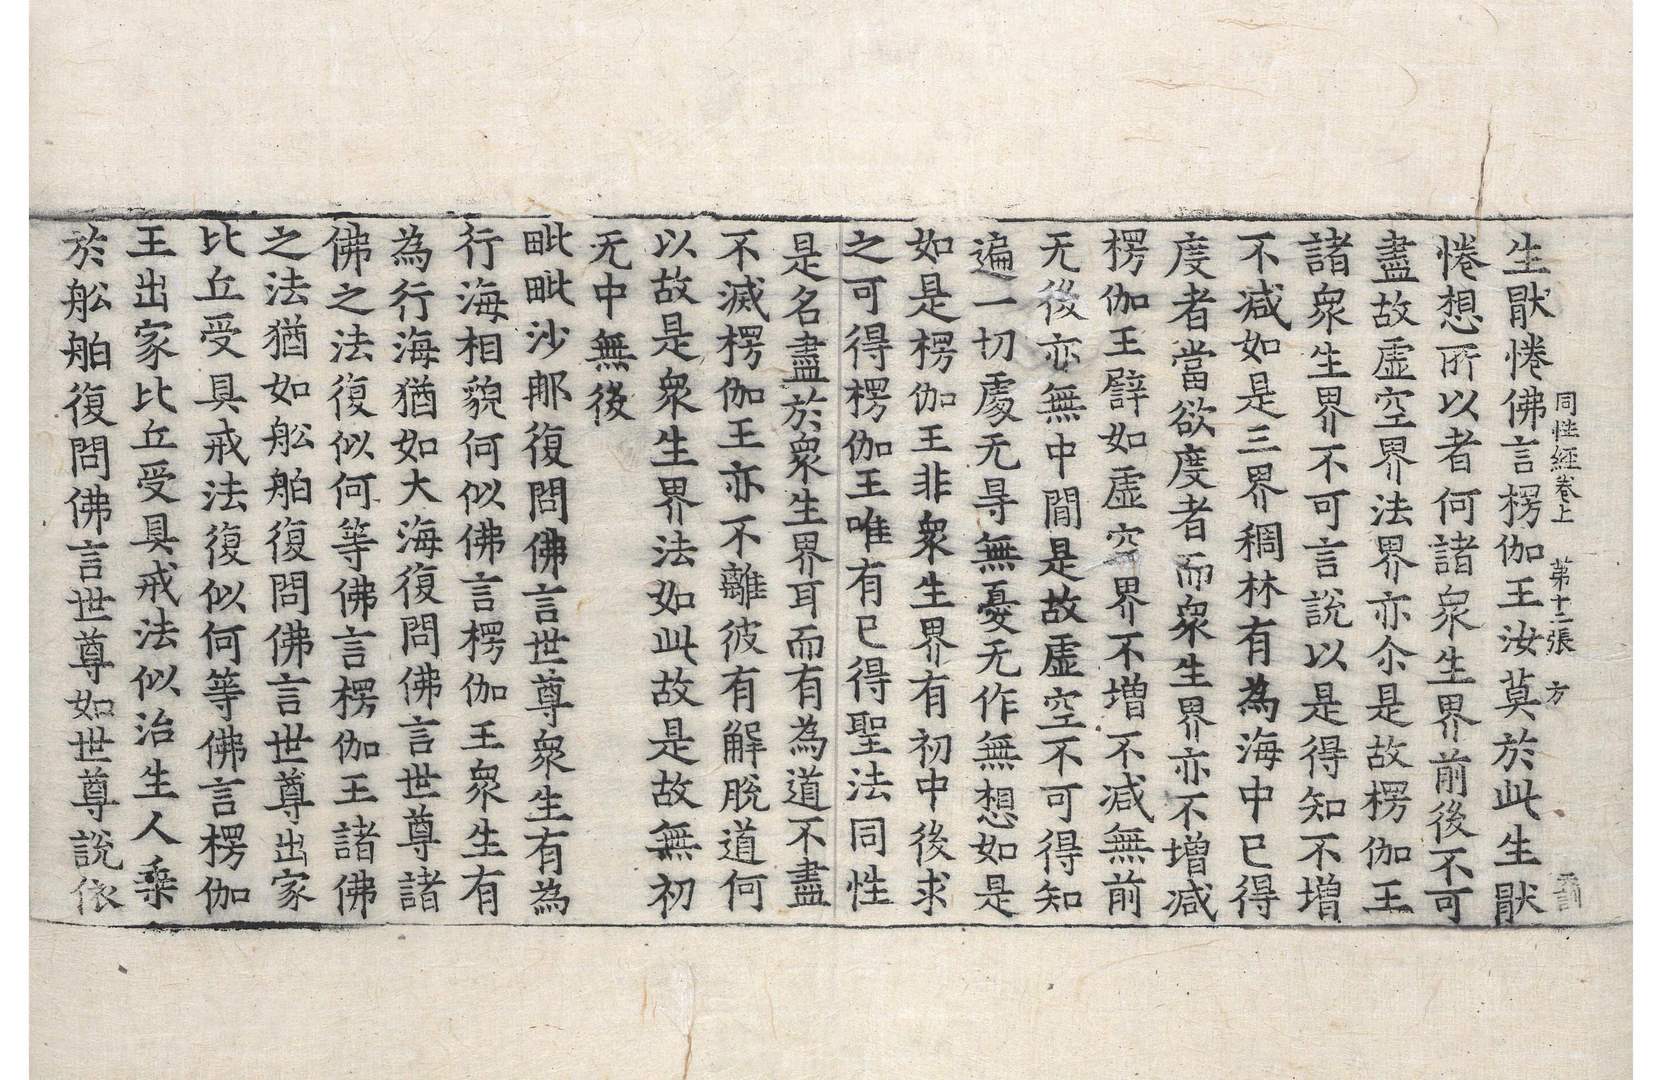 同性經卷上 第十二張 方
生猒惓佛言楞伽王汝莫於此生猒
惓想所以者何諸衆生界前後不可
盡故虛空界法界亦尒是故楞伽王
諸衆生界不可言說以是得知不增
不減如是三界稠林有為海中已得
度者當欲度者而衆生界亦不增減
楞伽王譬如虛空界不增不減無前
无後亦無中間是故虛空不可得知
遍一切處无㝵無憂无作無想如是
如是楞伽王非衆生界有初中後求
之可得楞伽王唯有已得聖法同性
是名盡於衆生界耳而有為道不盡
不滅楞伽王亦不離彼有解脫道何
以故是衆生界法如此故是故無初
无中無後
毗毗沙那復問佛言世尊衆生有為
行海相貌何似佛言楞伽王衆生有
為行海猶如大海復問佛言世尊諸
佛之法復似何等佛言楞伽王諸佛
之法猶如舩舶復問佛言世尊出家
比丘受具戒法復似何等佛言楞伽
王出家比丘受具戒法似治生人乗
於舩舶復問佛言世尊如世尊說依